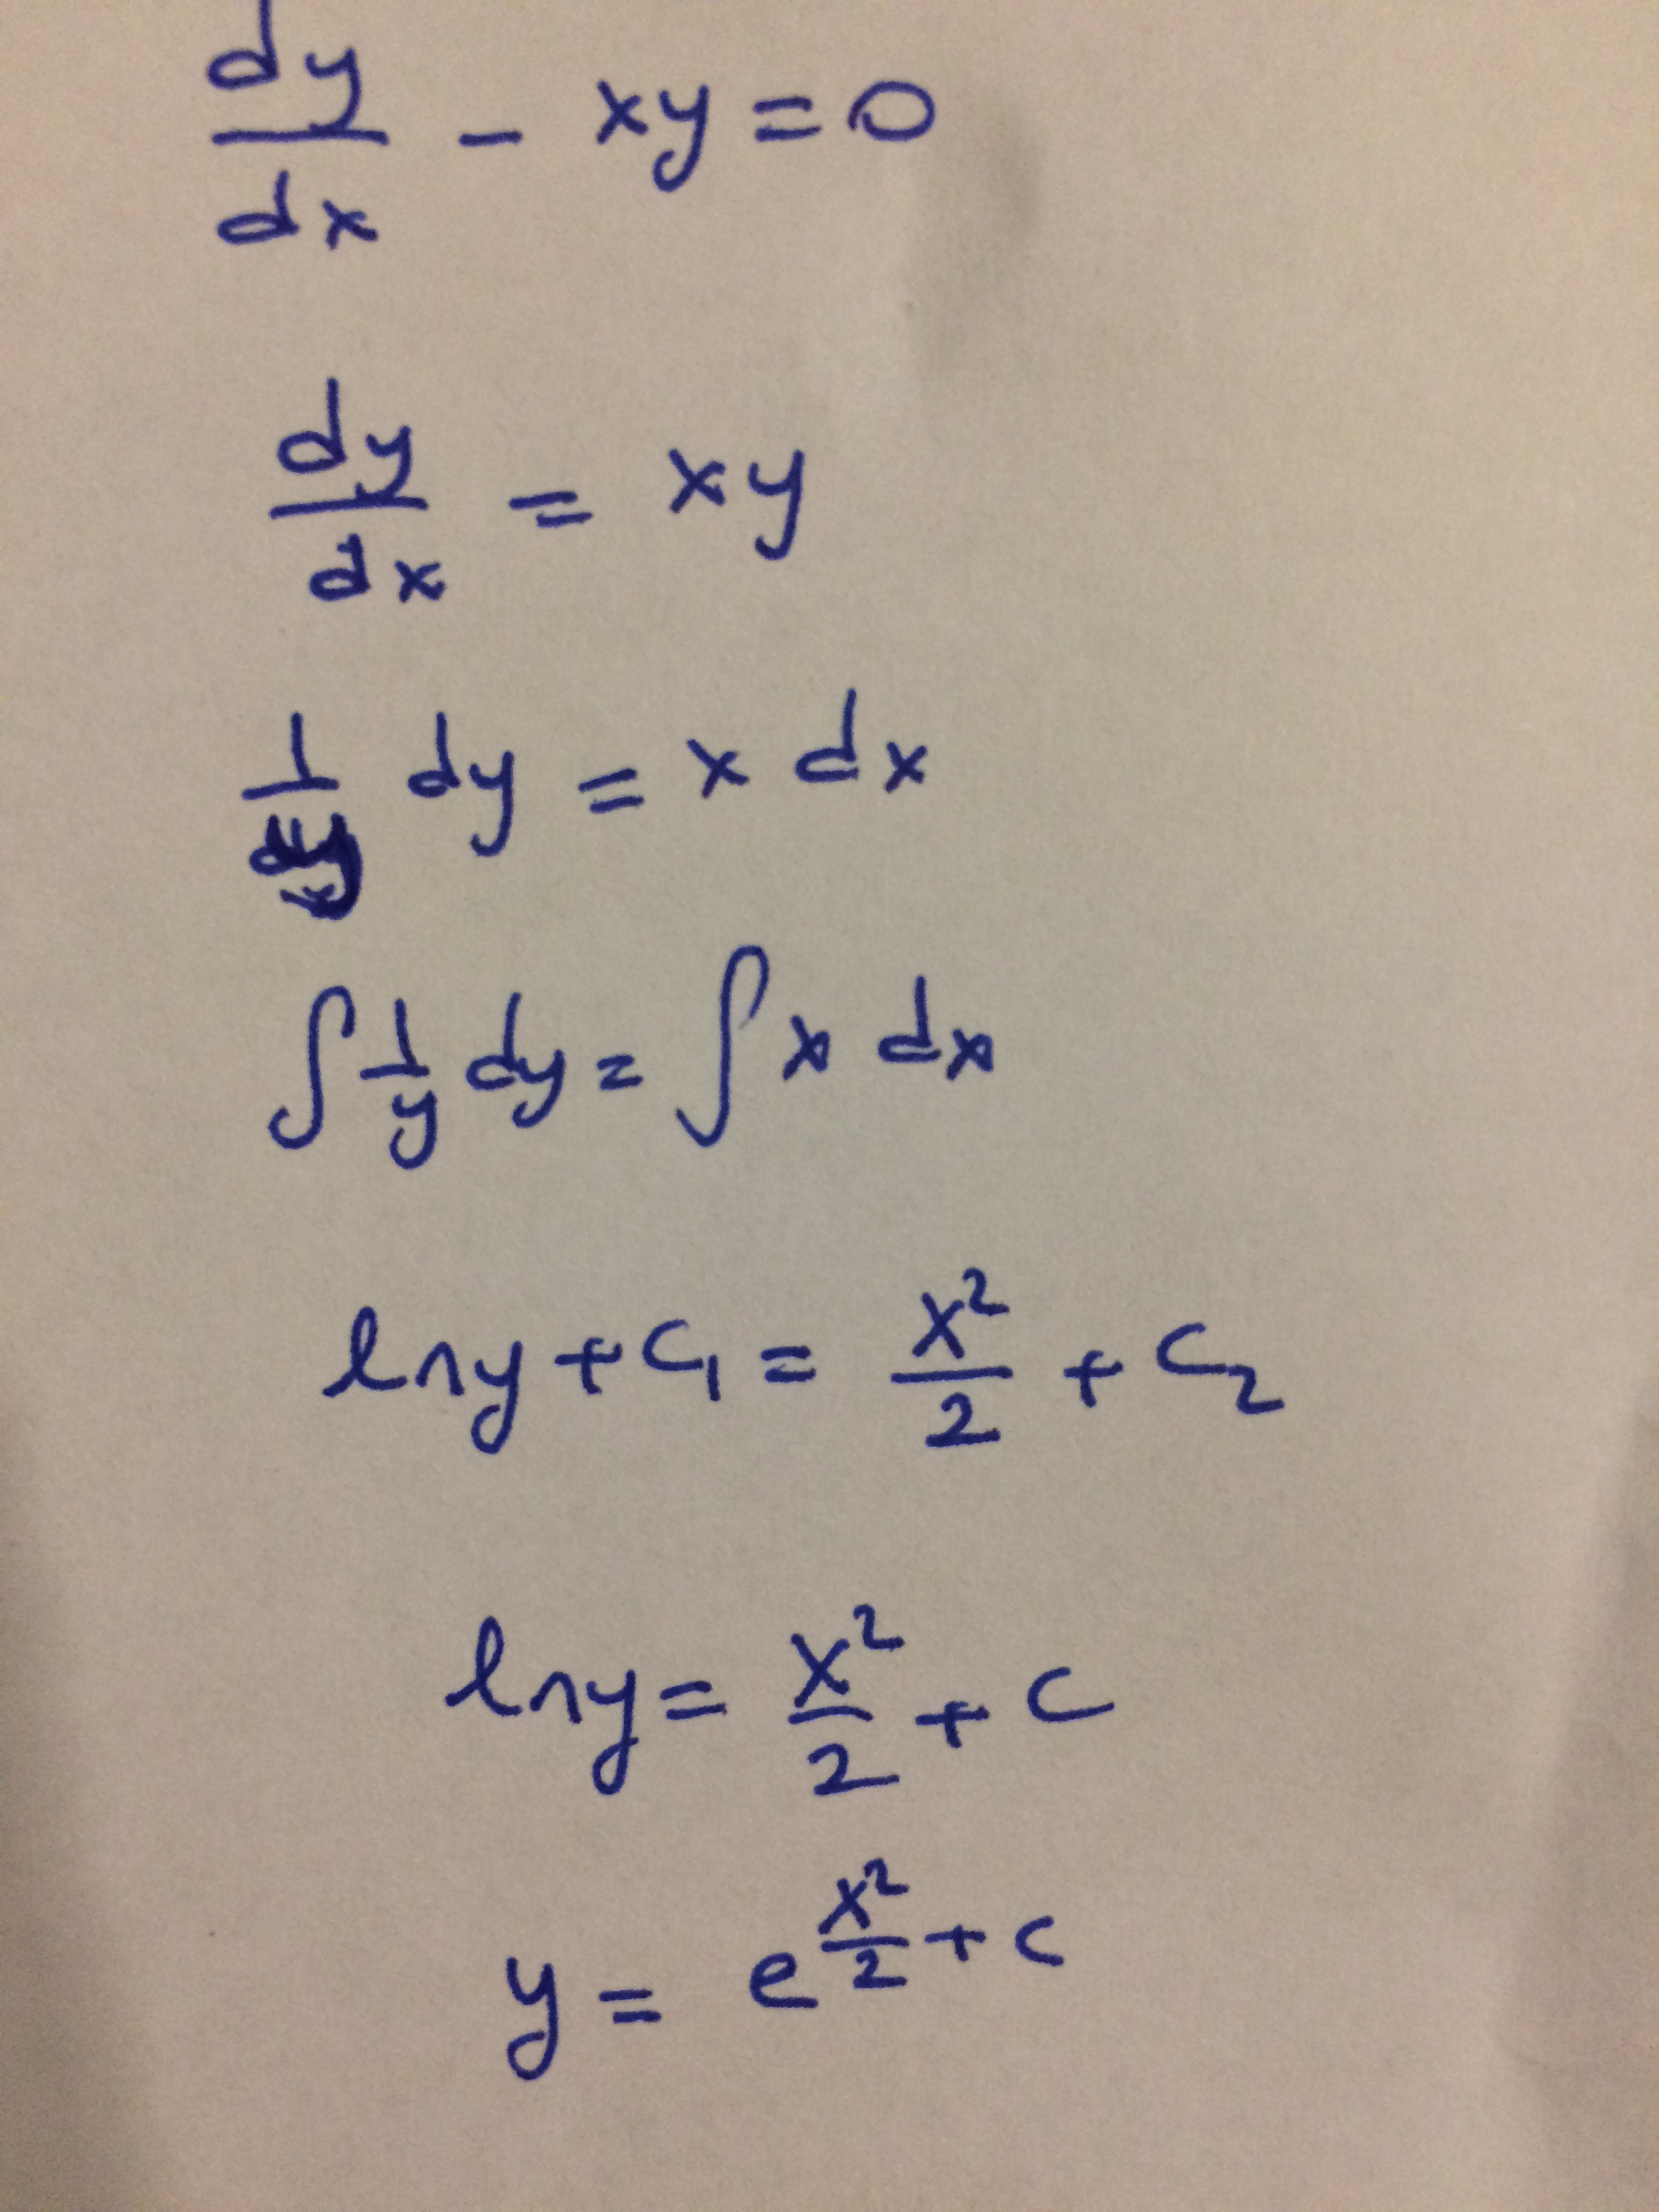 dy/dx - xy = 0
dy/dx = xy
1/y dy = x dx
∫ 1/y dy = ∫ x dx
ln y + C₁ = x²/2 + C₂
ln y = x²/2 + C
y = e^(x²/2 + C)